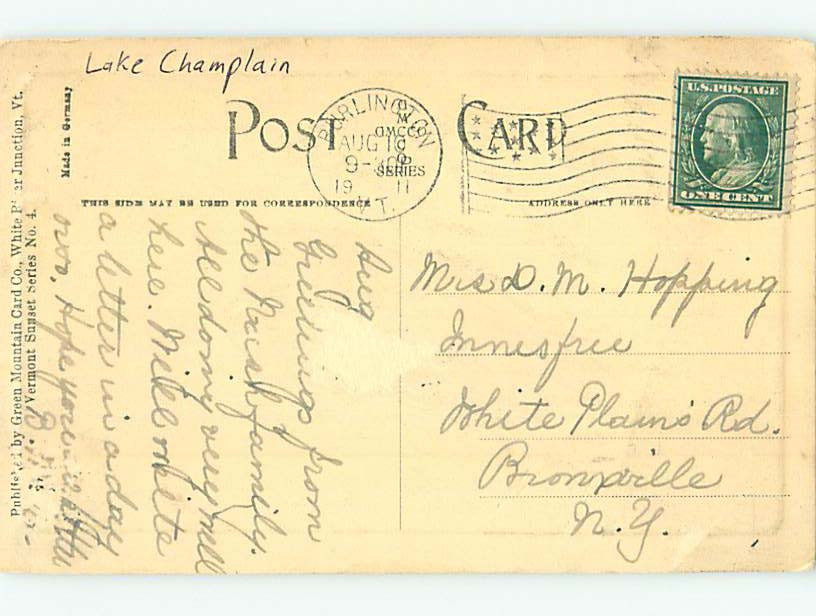 Lake Champlain
POST CARD
BURLINGTON
AUG 10
9-
19 11
VT.
SERIES
U.S. POSTAGE
ONE CENT
THIS SIDE MAY BE USED FOR CORRESPONDENCE
ADDRESS ONLY HERE
Made in Germany
Published by Green Mountain Card Co., White River Junction, Vt.
Vermont Sunset Series No. 4.
Aug
Greetings from
the Naish family.
All doing very well
here. Will write
a letter in a day
Hope you
Mrs D. M. Hopping
Innesfree
White Plains Rd.
Bronxville
N.Y.